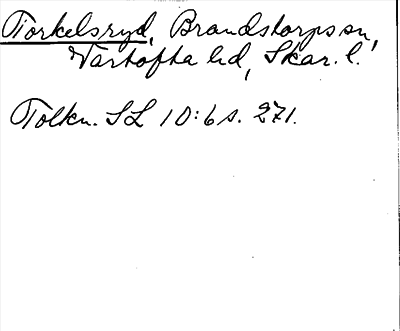 Torkelsryd, Brandstorps sn,
Vartofta hd, Skar. l.
Tolkn. SL 10:6 s. 271.